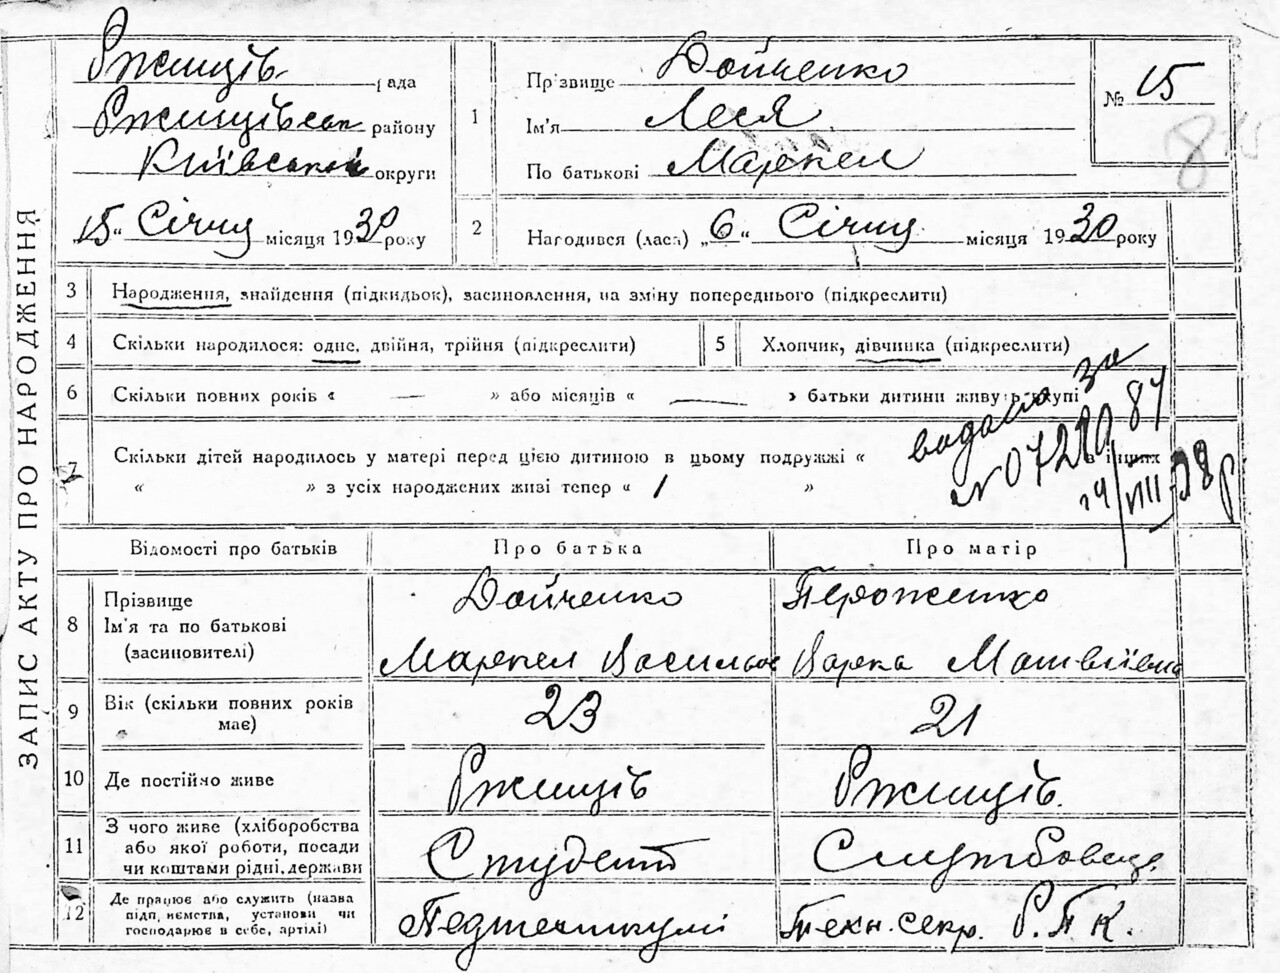 ЗАПИС АКТУ ПРО НАРОДЖЕННЯ
Ржищів рада
Ржищівськ району
Київської округи
„15“ Січня місяця 1930 року
1
Прізвище Дойченко
Ім'я Леся
По батькові Маркел
№ 15
2
Народився (лась) „6“ Січня місяця 1930 року
3 Народження, знайдення (підкидьок), засиновлення, на зміну попереднього (підкреслити)
4 Скільки народилося: одне, двійня, трійня (підкреслити)
5 Хлопчик, дівчинка (підкреслити)
6 Скільки повних років « — » або місяців « — » батьки дитини живуть вкупі
видано за
№ 07280 87
14/VIII-28р
7 Скільки дітей народилось у матері перед цією дитиною в цьому подружжі «
« » з усіх народжених живі тепер « 1 »
Відомості про батьків Про батька Про матір
8 Прізвище
Ім'я та по батькові
(засиновителі)
Дойченко
Маркел Васильов
Пероженко
Варка Матвіївна
9 Вік (скільки повних років
має)
23 21
10 Де постійно живе Ржищів Ржищів.
11 З чого живе (хліборобства
або якої роботи, посади
чи коштами рідні, держави
Студент Службовець
12 Де працює або служить (назва
підприємства, установи чи
господарює в себе, артілі)
Педтехнікумі Техн. секр. Р.П.К.